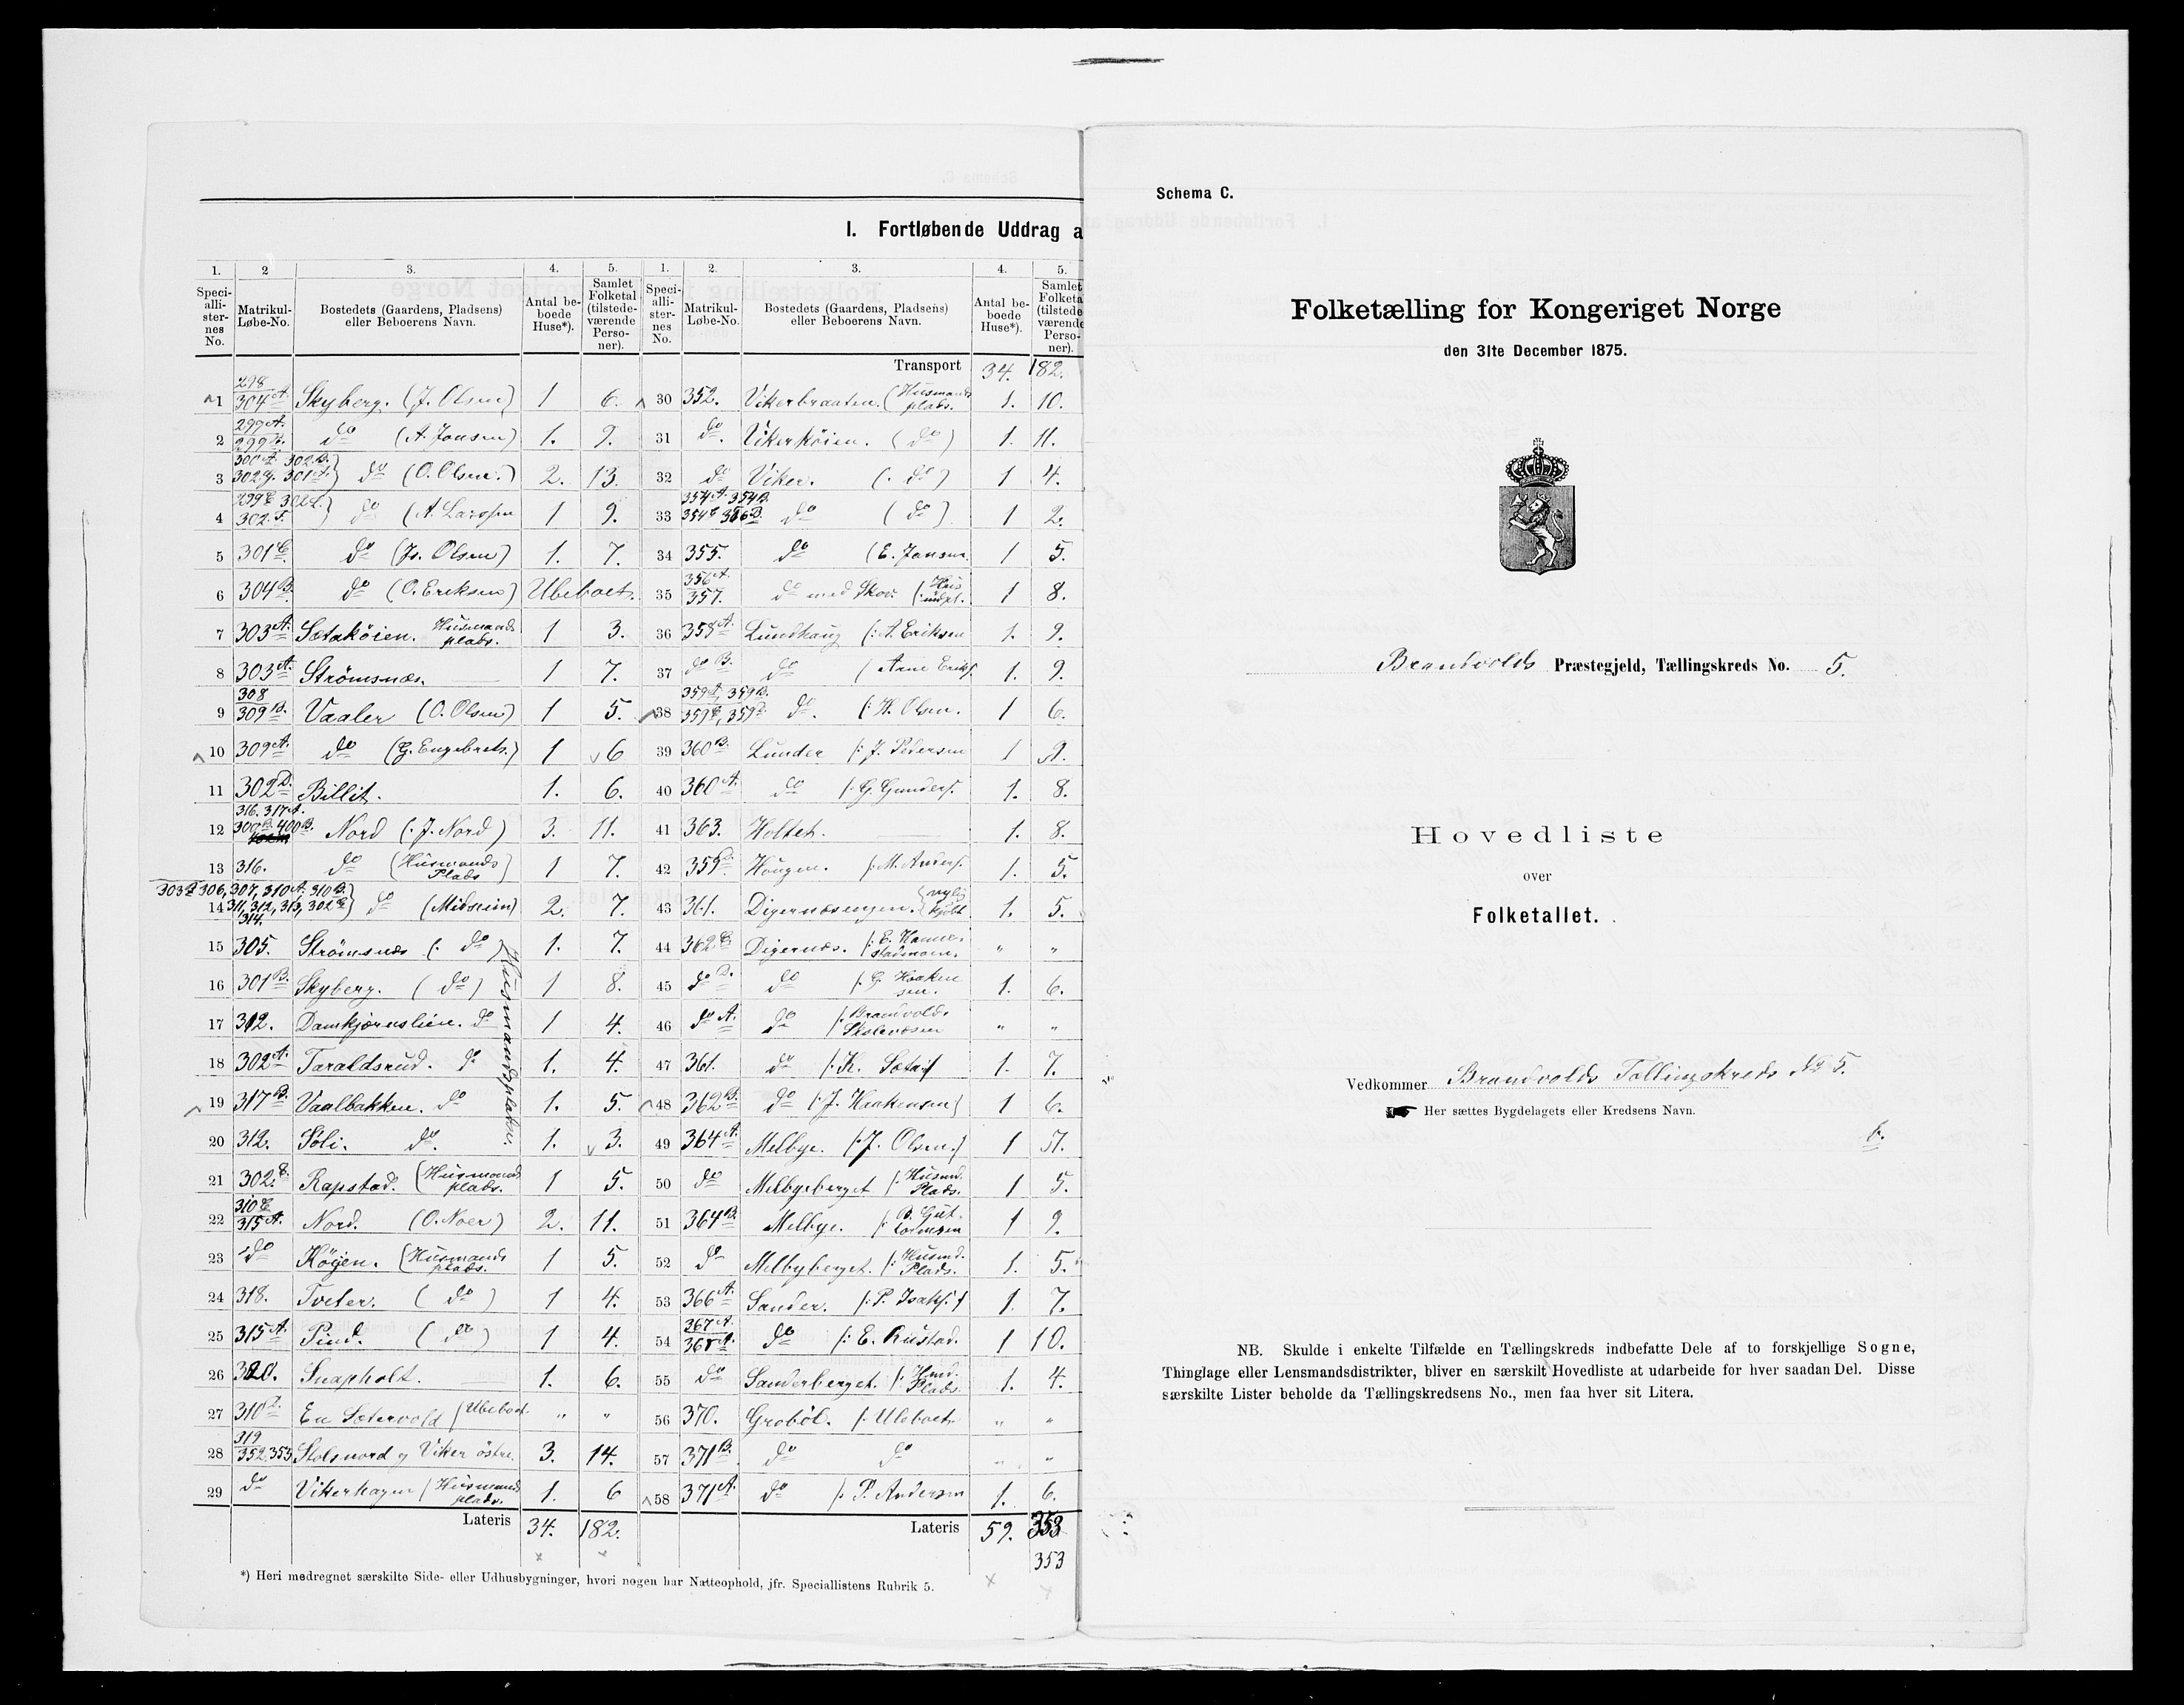 I. Fortløbende Uddrag a
1. 2 3. 4. 5. 1. 2. 3. 4. 5.
Speci-alli-ster-nes No. Matrikul-Løbe-No. Bostedets (Gaardens, Pladsens) eller Beboerens Navn. Antal be-boede Huse*). Samlet Folketal (tilstede-værende Perso-ner).
Speci-alli-ster-nes No. Matrikul-Løbe-No. Bostedets (Gaardens, Pladsens) eller Beboerens Navn. Antal be-boede Huse*). Samlet Folketa (tilstede værende Perso-ner).
1 298 304 A. Skyberg. (J. Olsen) 1 6.
2 299 A. do (A. Jansen) 1. 9.
3 300 A. 302 B. 301 A. do (O. Olsen.) 2. 13.
4 302. F. do (A. Larssen 1 9.
5 301 C. do (Js. Olsen) 1. 7.
6 304 B. do (O. Eriksen) Ubeboet.
7 303 A. Sætaköien. Husmands plads. 1 3.
8 303 A. Strömsnæs. 1 7.
9 308 309 B. Vaaler (O. Olsen) 1 5.
10 309 A. do (G. Engebrets.) 1 6
11 302 D. Billit. 1. 6.
12 316. 317 A. 400 B. Nord (J. Nord) 3. 11.
13 316. do (Husmands Plads) 1 7.
14 306, 307, 310 A. 310 B. 311, 312, 313, 302 314. do (Midseim) 2. 7.
15 305. Strömsnæs (: do) 1. 7.
16 301 B. Skyberg. (do) 1 8.
17 312. Damkjærnslien. do 1 4.
18 302 A. Taraldsrud. do 1. 4.
19 317 B. Vaalbakken. do 1. 5.
20 312. Söli. do. 1. 3.
Husmandspladse.
21 302. Rapstad. (Husmands plads. 1 5.
22 310 315 A. Nord. (O. Noer) 2. 11.
23 do Köyen. (Husmands plads. 1 5.
24 318. Tveter. (do) 1 4.
25 315 A. Pind. (do) 1 4.
26 320. Snapholt. 1. 6.
27 310 En Sætervold (Ubeboet. " "
28 319 352, 353 Stolsnord og Viker östre. 3. 14.
29 do Vikerhagen (Husmands plads. 1. 6
Lateris 34. 182.
Transport 34. 182.
30 352. Vikerbraaten. (Husmands plads. 1. 10.
31 do. Vikerköien. (do) 1. 11.
32 do Viker. (: do) 1 4.
33 354 A. 354 B. 354 356 B. do (do) 1 2.
34 355. do (E. Jansen. 1 5.
35 356 A. 357. do med Skov. 1 8.
36 358 A. Lundhaug (: A. Eriksen 1. 9.
37 do B. do (Arne Eriks. 1. 9.
38 359 A, 359 B. 359 C, 359 do. (: H. Olsen. 1 6.
39 360 B. Lunder (: J. Pedersen 1 9.
40 360 A. do (: G. Gunders. 1. 8.
41 363. Holteh. 1. 8.
42 359 Haugen. (: M. Anders. 1. 5.
43 361. Digernæsengen. (nylig kjöbt 1. 5.
44 362 Digernæs. " "
45 do D. do (: G. Haaken sen. 1. 6.
46 do A. do (: Brandvolds Skolevæsen " "
47 361. do (: K. Sæta) 1. 7.
48 362 B. do (: J. Haakensen) 1 6.
49 364 A. Melbye. (: J. Olsen.) 1 11.
50 do Melbyeberget (: Husmd. Plads. 1 5.
51 364 B. Melbye. (: B. Gut- tormsen 1 9.
52 do Melbyberget. (: Husmd. Plads. 1. 5.
53 366 A. Sander. (: P. Isaks.) 1. 7.
54 367 A. do (: E. Rustad. 1 10.
55 do Sanderberget. (: Husmd. Plads. 1. 4.
56 370. Groböl. (: Ubeboet. " "
57 371 B. do do " "
58 371 A. do (: P. Andersen 1. 6.
Lateris 59. 353
353
*) Heri medregnet særskilte Side- eller Udhusbygninger, hvori nogen har Natteophold, jfr. Speciallistens Rubrik 5.
Schema C.
Folketælling for Kongeriget Norge
den 31te December 1875.
Brandvolds Præstegjeld, Tællingskreds No. 5.
Hovedliste
over
Folketallet.
Vedkommer Brandvolds Tællingskreds No 5.
Her sættes Bygdelagets eller Kredsens Navn.
b.
NB. Skulde i enkelte Tilfælde en Tællingskreds indbefatte Dele af to forskjellige Sogne,
Thinglage eller Lensmandsdistrikter, bliver en særskilt Hovedliste at udarbeide for hver saadan Del. Disse
særskilte Lister beholde da Tællingskredsens No., men faa hver sit Litera.